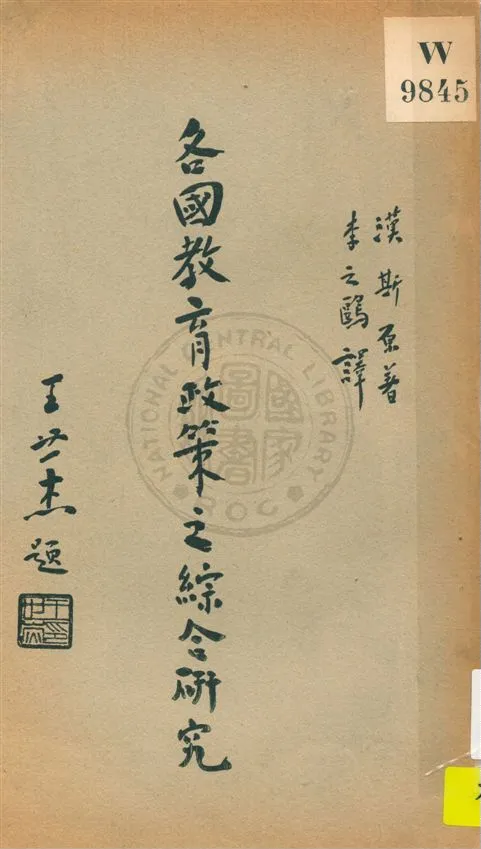 W
9845
漢斯原著
李之鷗譯
各國教育政策之綜合研究
王世杰題
NATIONAL CENTRAL LIBRARY
國家圖書館
ROC